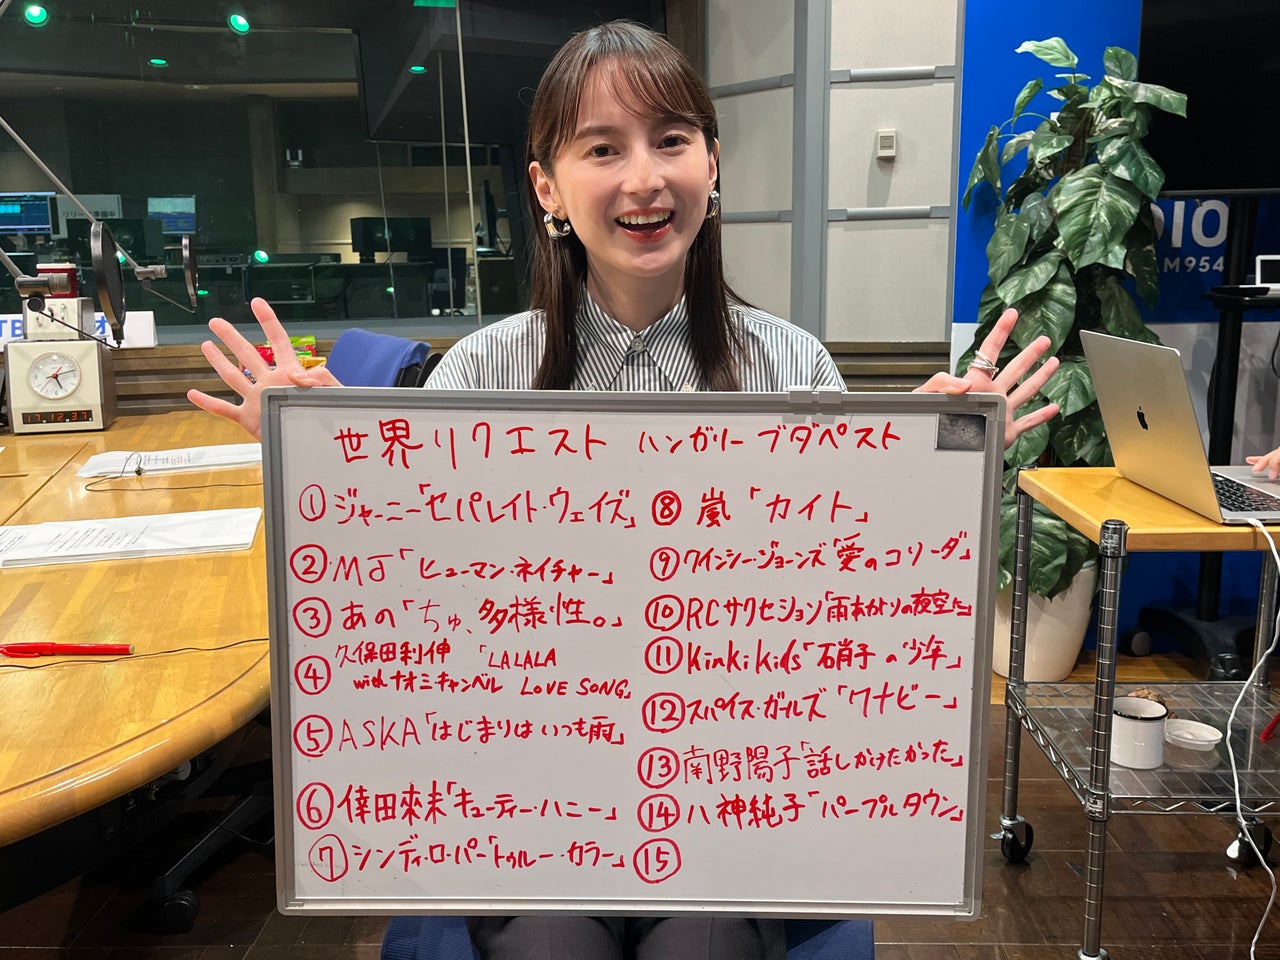 世界リクエスト ハンガリーブダペスト
①ジャーニー「セパレイト・ウェイズ」
②MJ「ヒューマン・ネイチャー」
③あの「ちゅ、多様性。」
④久保田利伸 with ナオミキャンベル 「LA LA LA LOVE SONG」
⑤ASKA「はじまりはいつも雨」
⑥倖田來未「キューティー・ハニー」
⑦シンディ・ローパー「トゥルー・カラー」
⑧嵐「カイト」
⑨クインシー・ジョーンズ「愛のコリーダ」
⑩RCサクセション「雨あがりの夜空に」
⑪kinki kids「硝子の少年」
⑫スパイス・ガールズ「ワナビー」
⑬南野陽子「話しかけたかった」
⑭八神純子「パープルタウン」
⑮
DIO
M954
17.12.37